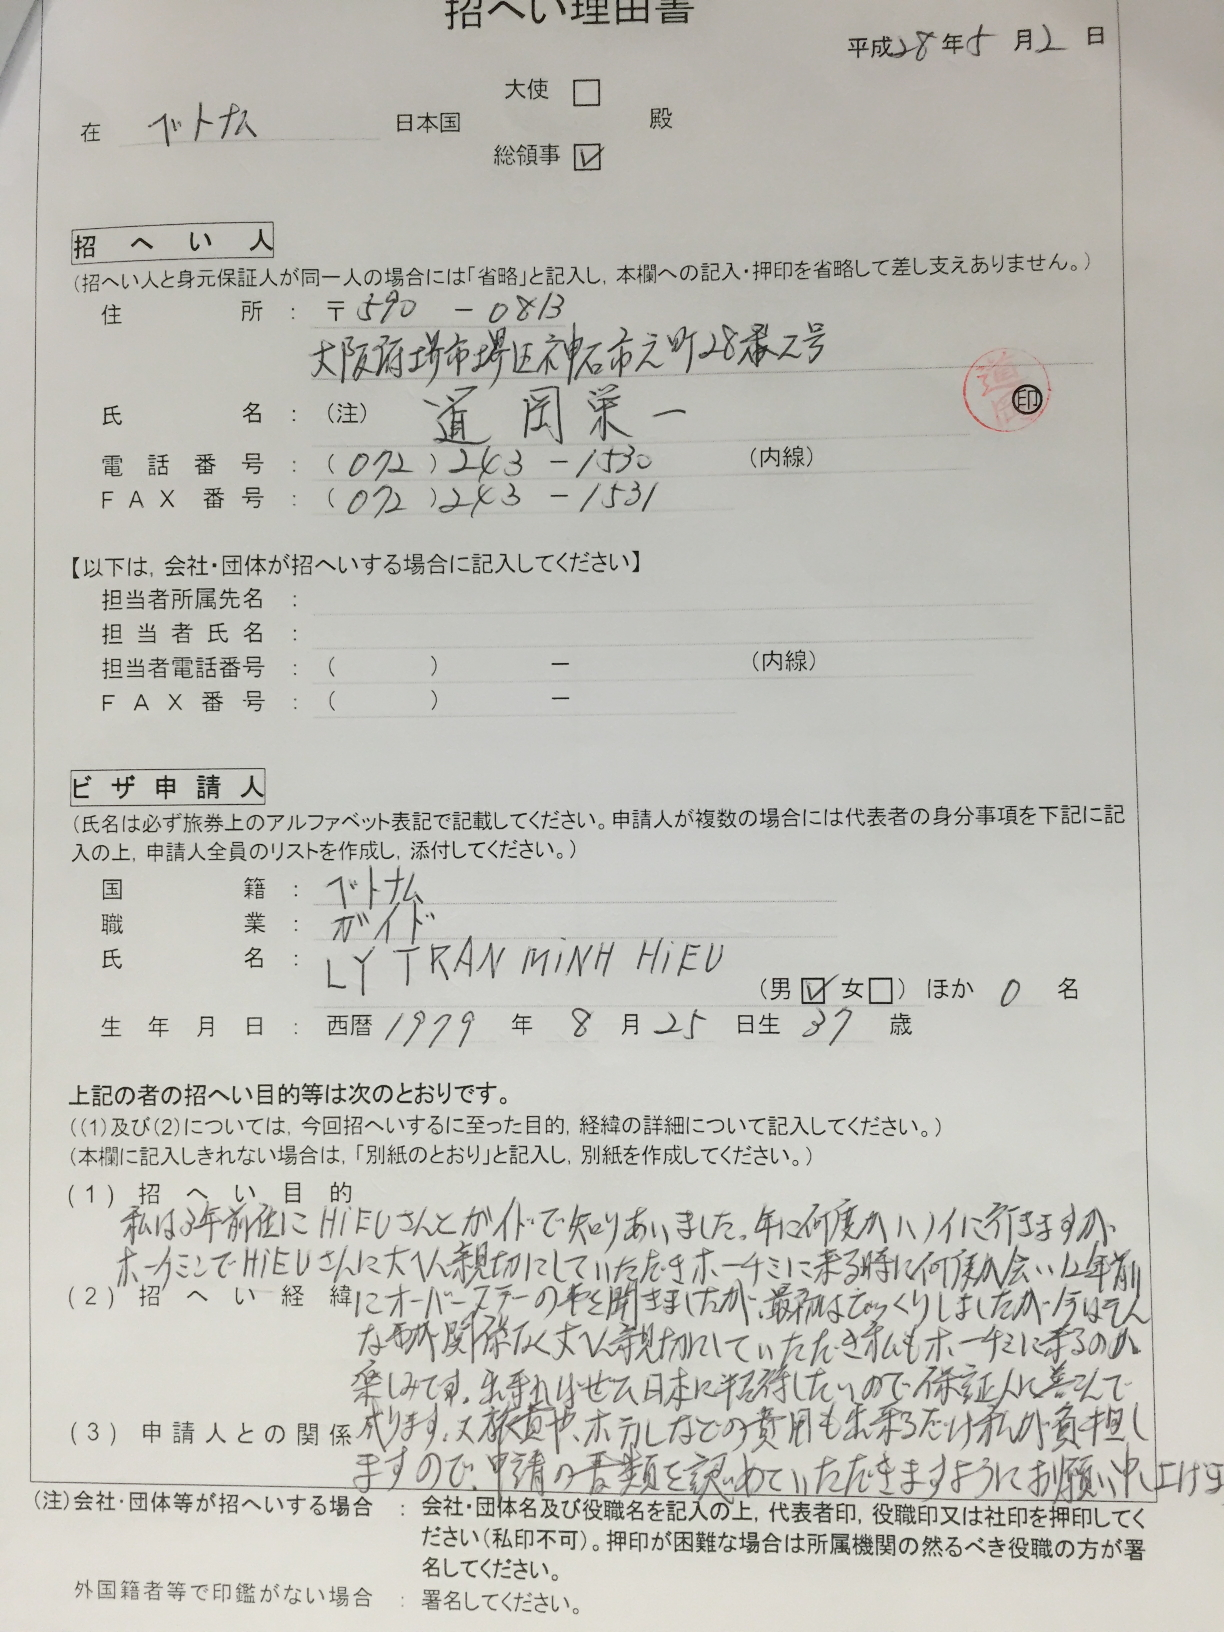 招へい理由書
平成28年5月2日
大使 □
在 ベトナム 日本国 殿
総領事 ☑
招へい人
(招へい人と身元保証人が同一人の場合には「省略」と記入し, 本欄への記入・押印を省略して差し支えありません。)
住所 : 〒590-0813
大阪府堺市堺区神石市之町28番2号
氏名 : (注) 道岡栄一 道岡 印
電話番号 : (072)243-1530 (内線)
FAX番号 : (072)243-1531
【以下は, 会社・団体が招へいする場合に記入してください】
担当者所属先名 :
担当者氏名 :
担当者電話番号 : ( ) - (内線)
FAX番号 : ( ) -
ビザ申請人
(氏名は必ず旅券上のアルファベット表記で記載してください。申請人が複数の場合には代表者の身分事項を下記に記
入の上, 申請人全員のリストを作成し, 添付してください。)
国籍 : ベトナム
職業 : ガイド
氏名 : LY TRAN MiNH HiEU
(男☑女□) ほか 0 名
生年月日 : 西暦1979年8月25日生 37歳
上記の者の招へい目的等は次のとおりです。
((1)及び(2)については, 今回招へいするに至った目的, 経緯の詳細について記入してください。)
(本欄に記入しきれない場合は, 「別紙のとおり」と記入し, 別紙を作成してください。)
(1) 招へい目的
私は3年前位にHiEUさんとガイドで知りあいました。年に何度かハノイに行きますが
ホーチミンでHiEUさんに大へん親切にしていただきホーチミンに来る時に何度か会い12年前
(2) 招へい経緯 にオーバーステーの事を聞きましたが、最初はびっくりしましたが今はそん
な事が関係なく大へん親切にしていただき私もホーチミンに来るのが
楽しみです。出来ればぜひ日本に招待したいので保証人に喜こんで
(3) 申請人との関係 成ります。又旅費や、ホテルなどの費用も出来るだけ私が負担し
ますので、申請の書類を認めていただきますようにお願い申し上げま
(注)会社・団体等が招へいする場合 : 会社・団体名及び役職名を記入の上, 代表者印, 役職印又は社印を押印してく
ださい(私印不可)。押印が困難な場合は所属機関の然るべき役職の方が署
名してください。
外国籍者等で印鑑がない場合 : 署名してください。